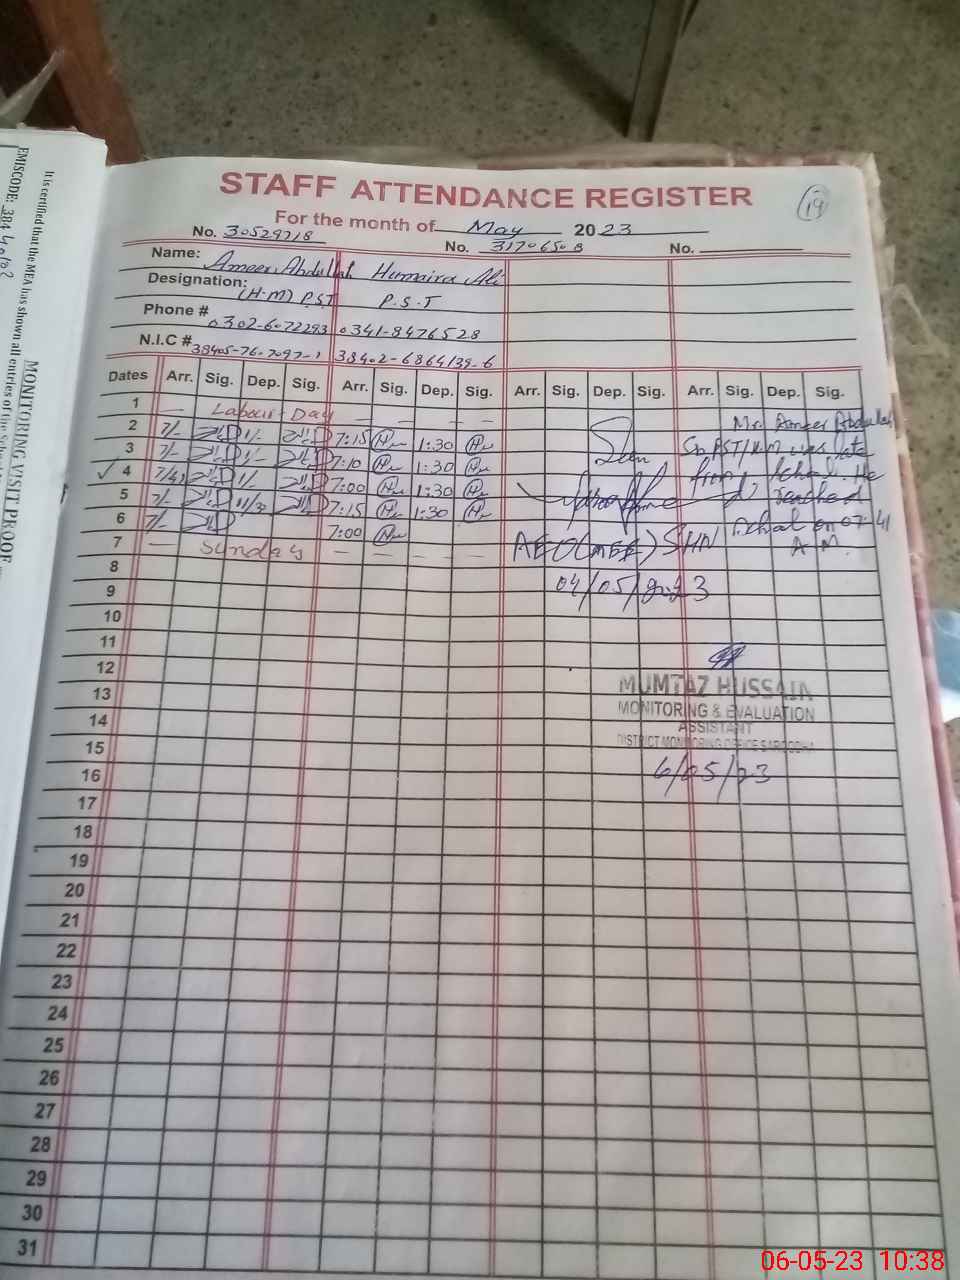 STAFF ATTENDANCE REGISTER
19
For the month of May 2023
No. 30529718 No. 31706508 No.
Name: Ameer Abdullah Humaira Ali
Designation: (H-M) P.S.T P.S.T
Phone # 0302-6072293 0341-8476528
N.I.C # 38405-76 38402-6864139-6
Dates Arr. Sig. Dep. Sig. Arr. Sig. Dep. Sig. Arr. Sig. Dep. Sig. Arr. Sig. Dep. Sig.
1 — Labour Day — — — —
2 7/- 1/- 7:15 1:30
3 7/- 1/- 7:10 1:30
4 7/41 1/- 7:00 1:30
5 7/- 11/30 7:15 1:30
6 7/- 7:00
7 — Sunday — — — — —
8
9
10
11
12
13
14
15
16
17
18
19
20
21
22
23
24
25
26
27
28
29
30
31
Seen
AEO(MEE) SHN
04/05/2023
Mr. Ameer Abdullah
PST/H.M was late
from school. He
reached
school on 07:41
A.M.
MUMTAZ HUSSAIN
MONITORING & EVALUATION
ASSISTANT
DISTRICT MONITORING OFFICE SARGODHA
6/05/23
It is certified that the MEA has shown all entries of the
EMISCODE: 384
MONITORING VISIT PROOF
06-05-23 10:38